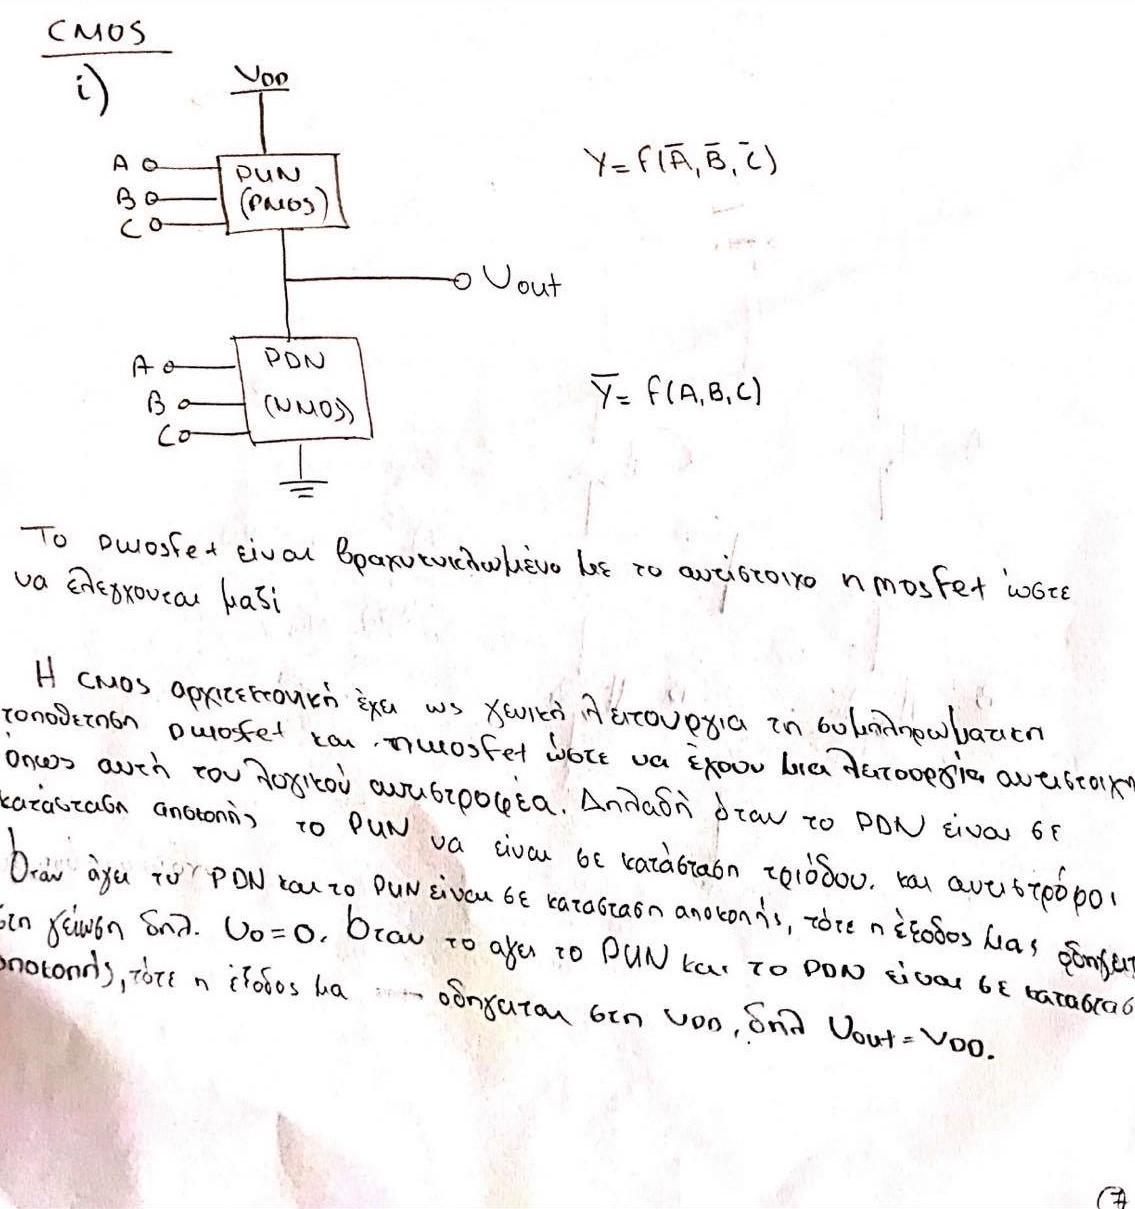 CMOS
i)
VDD
A
B
C
PUN
(PMOS)
Y = f(Ā, B̄, C̄)
Vout
A
B
C
PDN
(NMOS)
Ȳ = f(A, B, C)
Το pmosfet είναι βραχυκυκλωμένο με το αντίστοιχο nmosfet ώστε
να ελέγχονται μαζί
Η CMOS αρχιτεκτονική έχει ως γενική λειτουργια τη συμπληρωματικη
τοποθετηση pmosfet και nmosfet ώστε να έχουν μια λειτουργία αντιστοιχη
όπως αυτή του λογικού αντιστροφέα. Δηλαδή όταν το PDN είναι σε
κατάσταση αποκοπής το PUN να είναι σε κατάσταση τριόδου. και αντιστρόφοι
Όταν άγει το PDN και το PUN είναι σε κατασταση αποκοπής, τότε η έξοδος μας οδηγειτ
στη γείωση δηλ. Vo = 0. Όταν το αγει το PUN και το PDN είναι σε καταστασ
αποκοπής, τότε η έξοδος μα οδηγειται στη VDD, δηλ Vout = VDD.
(7